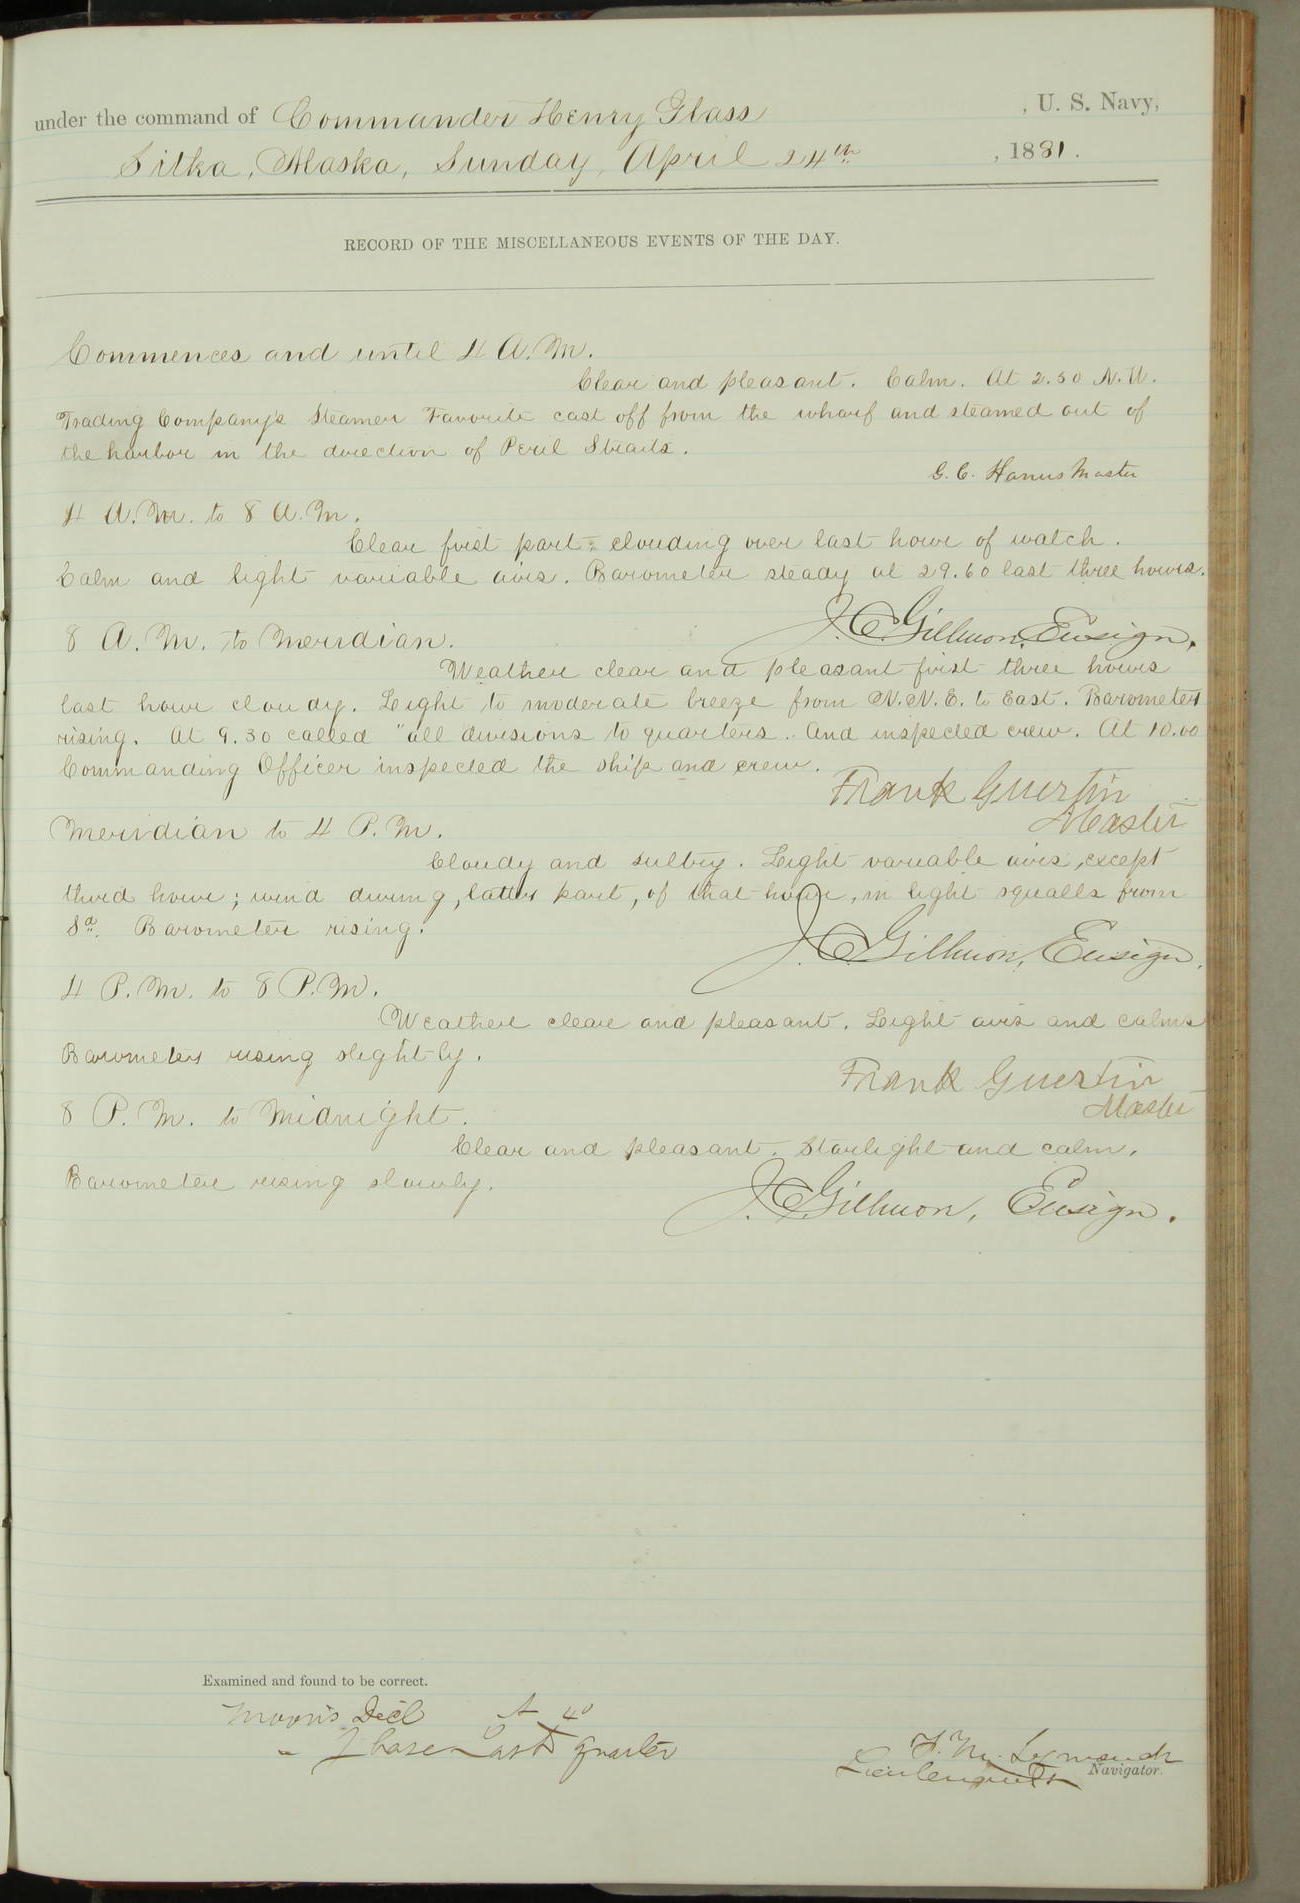 under the command of Commander Henry Glass, U. S. Navy,
Sitka, Alaska, Sunday, April 24th, 1881.
RECORD OF THE MISCELLANEOUS EVENTS OF THE DAY.
Commences and until 4 A.M.
Clear and pleasant. Calm. At 2.30 N.W.
Trading Company's Steamer Favorite cast off from the wharf and steamed out of
the harbor in the direction of Peril Straits.
G. C. Hanus Master
4 A.M. to 8 A.M.
Clear first part; clouding over last hour of watch.
Calm and light variable airs. Barometer steady at 29.60 last three hours.
J. C. Gillmor, Ensign.
8 A.M. to Meridian.
Weather clear and pleasant first three hours
last hour cloudy. Light to moderate breeze from N.N.E. to East. Barometer
rising. At 9.30 called "all divisions to quarters. And inspected crew. At 10.00
Commanding Officer inspected the ship and crew.
Frank Guertin
Master
Meridian to 4 P.M.
Cloudy and sultry. Light variable airs, except
third hour; wind during, latter part, of that hour, in light squalls from
Sd. Barometer rising.
J. C. Gillmor, Ensign.
4 P.M. to 8 P.M.
Weather clear and pleasant. Light airs and calms
Barometer rising slightly.
Frank Guertin
Master
8 P.M. to Midnight.
Clear and pleasant. Starlight and calm.
Barometer rising slowly.
J. C. Gillmor, Ensign.
Examined and found to be correct.
Moon's Decl
" Phase Last Quarter
F. M. Symonds
Lieutenant Navigator.